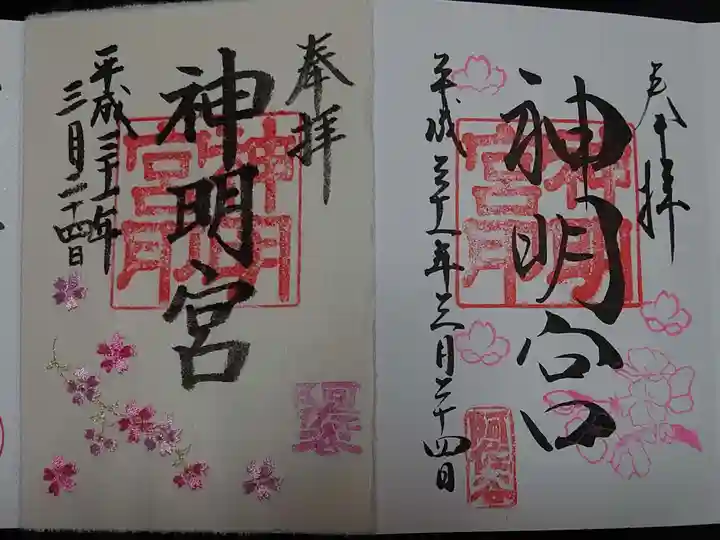 奉拝
神明宮
神明宮
平成三十一年
三月二十四日
奉拝
神明宮
神明宮
平成三十一年三月二十四日